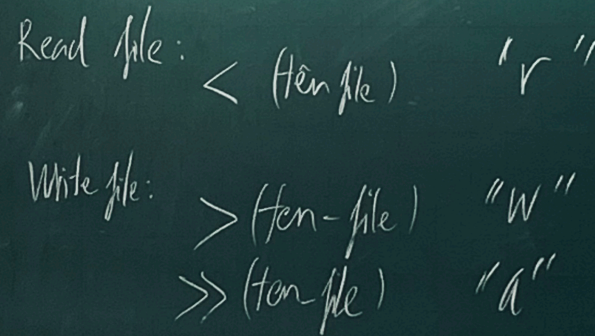 Read file:
< (tên file) "r"
Write file:
> (ten-file) "w"
>> (ten-file) "a"